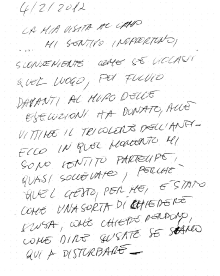 4/2/2012
LA MIA VISITA AL CAMPO
... MI SENTIVO INOPPORTUNO,
SCONVENIENTE COME SE VIOLASSI
QUEL LUOGO, POI FULVIO
DAVANTI AL MURO DELLE
ESECUZIONI HA DONATO, ALLE
VITTIME IL TRICOLORE DELL'ANPI-
ECCO IN QUEL MOMENTO MI
SONO SENTITO PARTECIPE,
QUASI SOLLEVATO, PERCHÈ
QUEL GESTO, PER ME, E' STATO
COME UNA SORTA DI CHIEDERE
SCUSA, COME CHIEDERE PERDONO,
COME DIRE SCUSATE SE SIAMO
QUI A DISTURBARE -